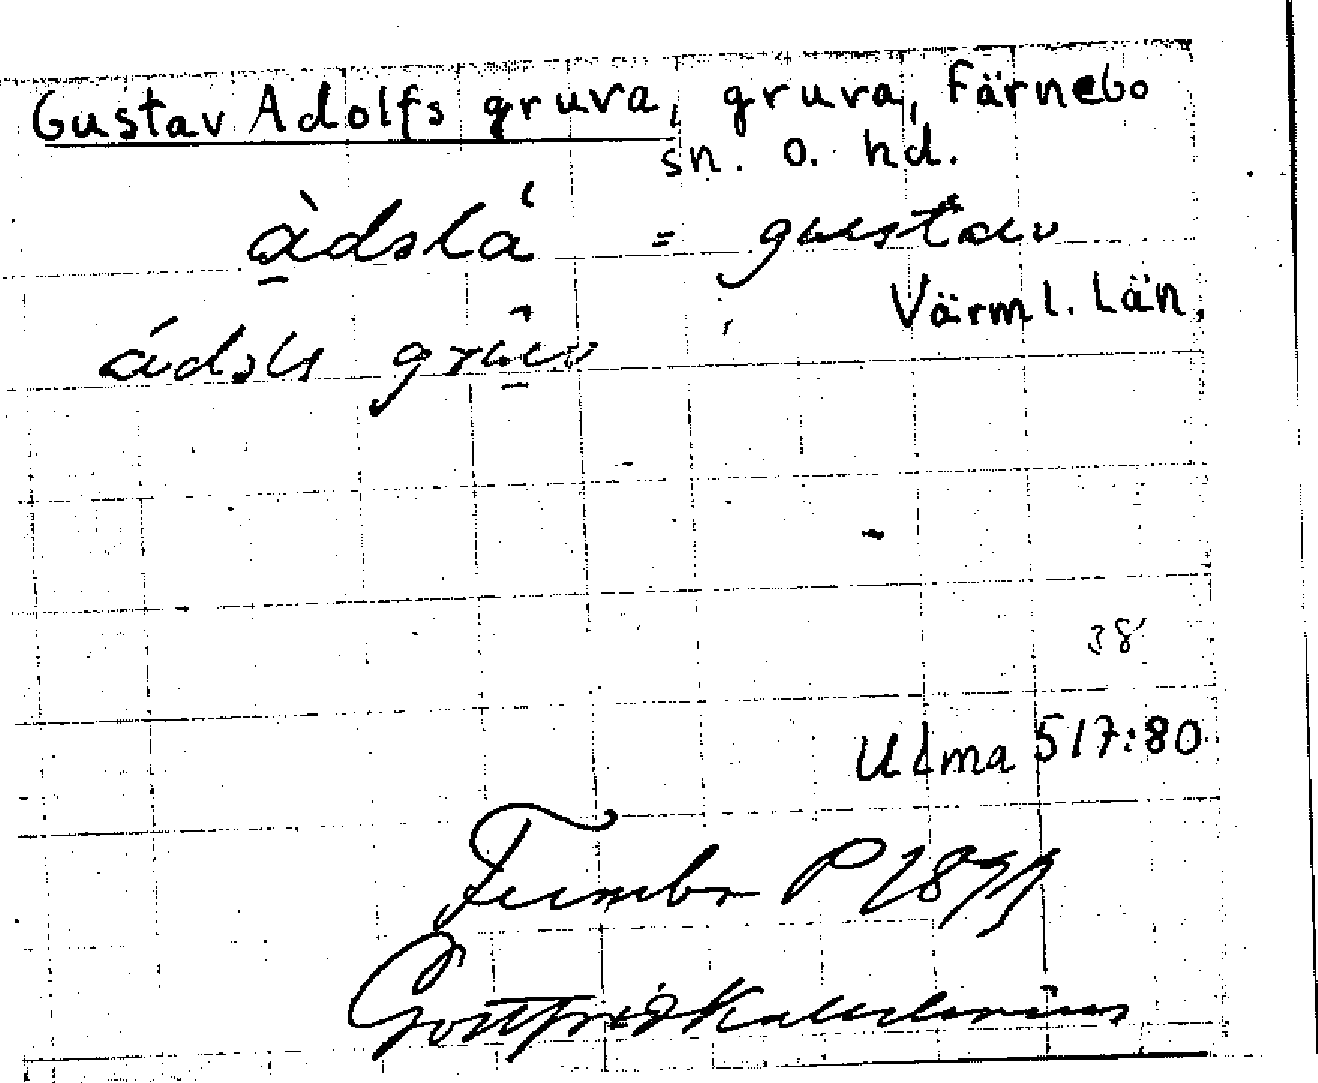 Gustav Adolfs gruva, gruva, Färnebo
sn. o. hd.
àdslá = gustav
Värml. Län.
ádsls grûv
38
Ulma 517:80
Fernebo P 1899
Gottfrid Kallstenius